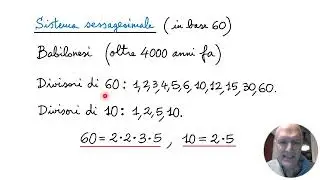 Sistema sessagesimale (in base 60)
Babilonesi (oltre 4000 anni fa)
Divisori di 60: 1,2,3,4,5,6,10,12,15,30,60.
Divisori di 10: 1,2,5,10.
60=2·2·3·5 , 10=2·5